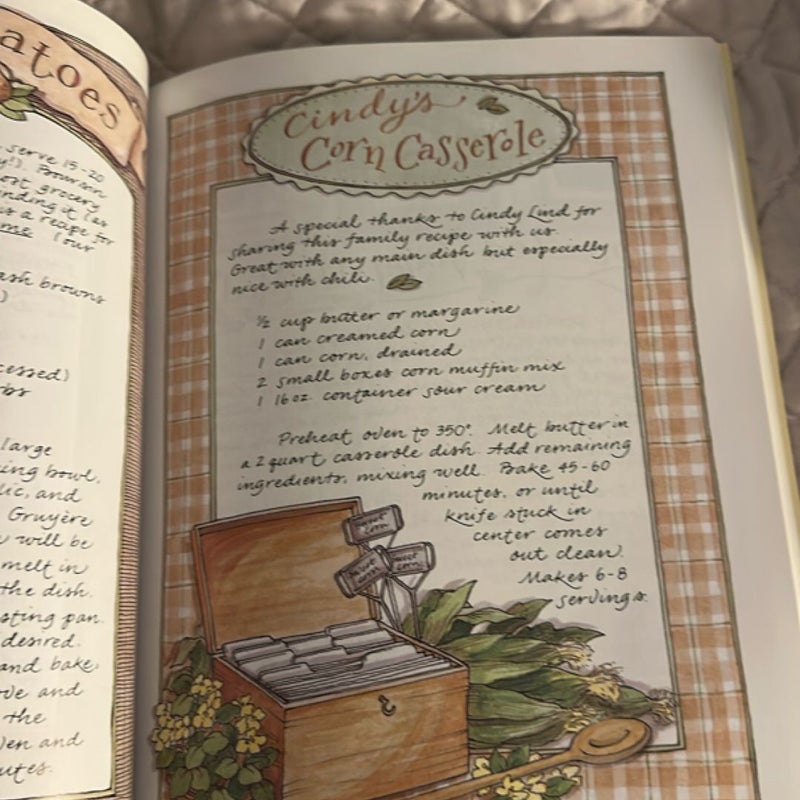 atoes
serve 15-20
y!). Poursin
ost grocery
nding it (as
is a recipe for
me (our
ash browns
)
cessed)
bs
large
ing bowl,
lic, and
Gruyère
will be
melt in
the dish.
sting pan.
desired.
and bake
ove and
the
Oven and
utes.
Cindy's
Corn Casserole
A special thanks to Cindy Lind for
sharing this family recipe with us.
Great with any main dish but especially
nice with chili.
½ cup butter or margarine
1 can creamed corn
1 can corn, drained
2 small boxes corn muffin mix
1 16 oz. container sour cream
Preheat oven to 350°. Melt butter in
a 2 quart casserole dish. Add remaining
ingredients, mixing well. Bake 45-60
minutes, or until
knife stuck in
center comes
out clean.
Makes 6-8
servings.
sweet
corn
sweet
corn
sweet
corn